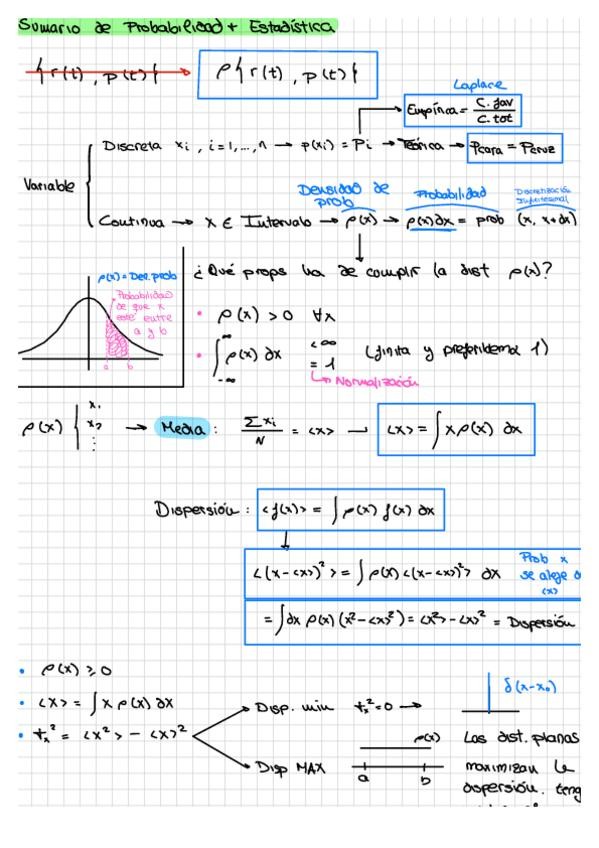 Sumario de Probabilidad + Estadística
{r(t), p(t)} ρ{r(t), p(t)}
Laplace
Empírica = C. fav / C. tot
Discreta xi, i=1,...,n → p(xi) = Pi → Teórica → Pcara = Pcruz
Variable
Densidad de prob Probabilidad Discretización Infinitesimal
Continua → x ∈ Intervalo → ρ(x) → ρ(x)dx = prob (x, x+dx)
ρ(x) = Den. prob
Probabilidad de que x esté entre a y b
a b
¿Qué props ha de cumplir la dist ρ(x)?
• ρ(x) > 0 ∀x
• ∫_{-∞}^{∞} ρ(x) dx < ∞ = 1 (finita y 1)
↳ Normalización
ρ(x) { x1 x2 ⋮ → Media: Σxi / N = <x> — <x> = ∫ x ρ(x) dx
Dispersión: <f(x)> = ∫ ρ(x) f(x) dx
<(x-<x>)²> = ∫ ρ(x) <(x-<x>)²> dx Prob x se aleje <x>
= ∫dx ρ(x) (x²-<x>²) = <x²> - <x>² = Dispersión
• ρ(x) ≥ 0
• <x> = ∫ x ρ(x) dx
• tx² = <x²> - <x>²
Disp. min tx² = 0 → δ(x-x₀)
Disp MAX ρ(x) a b
Las dist. planas
maximizan la
dispersión. teng